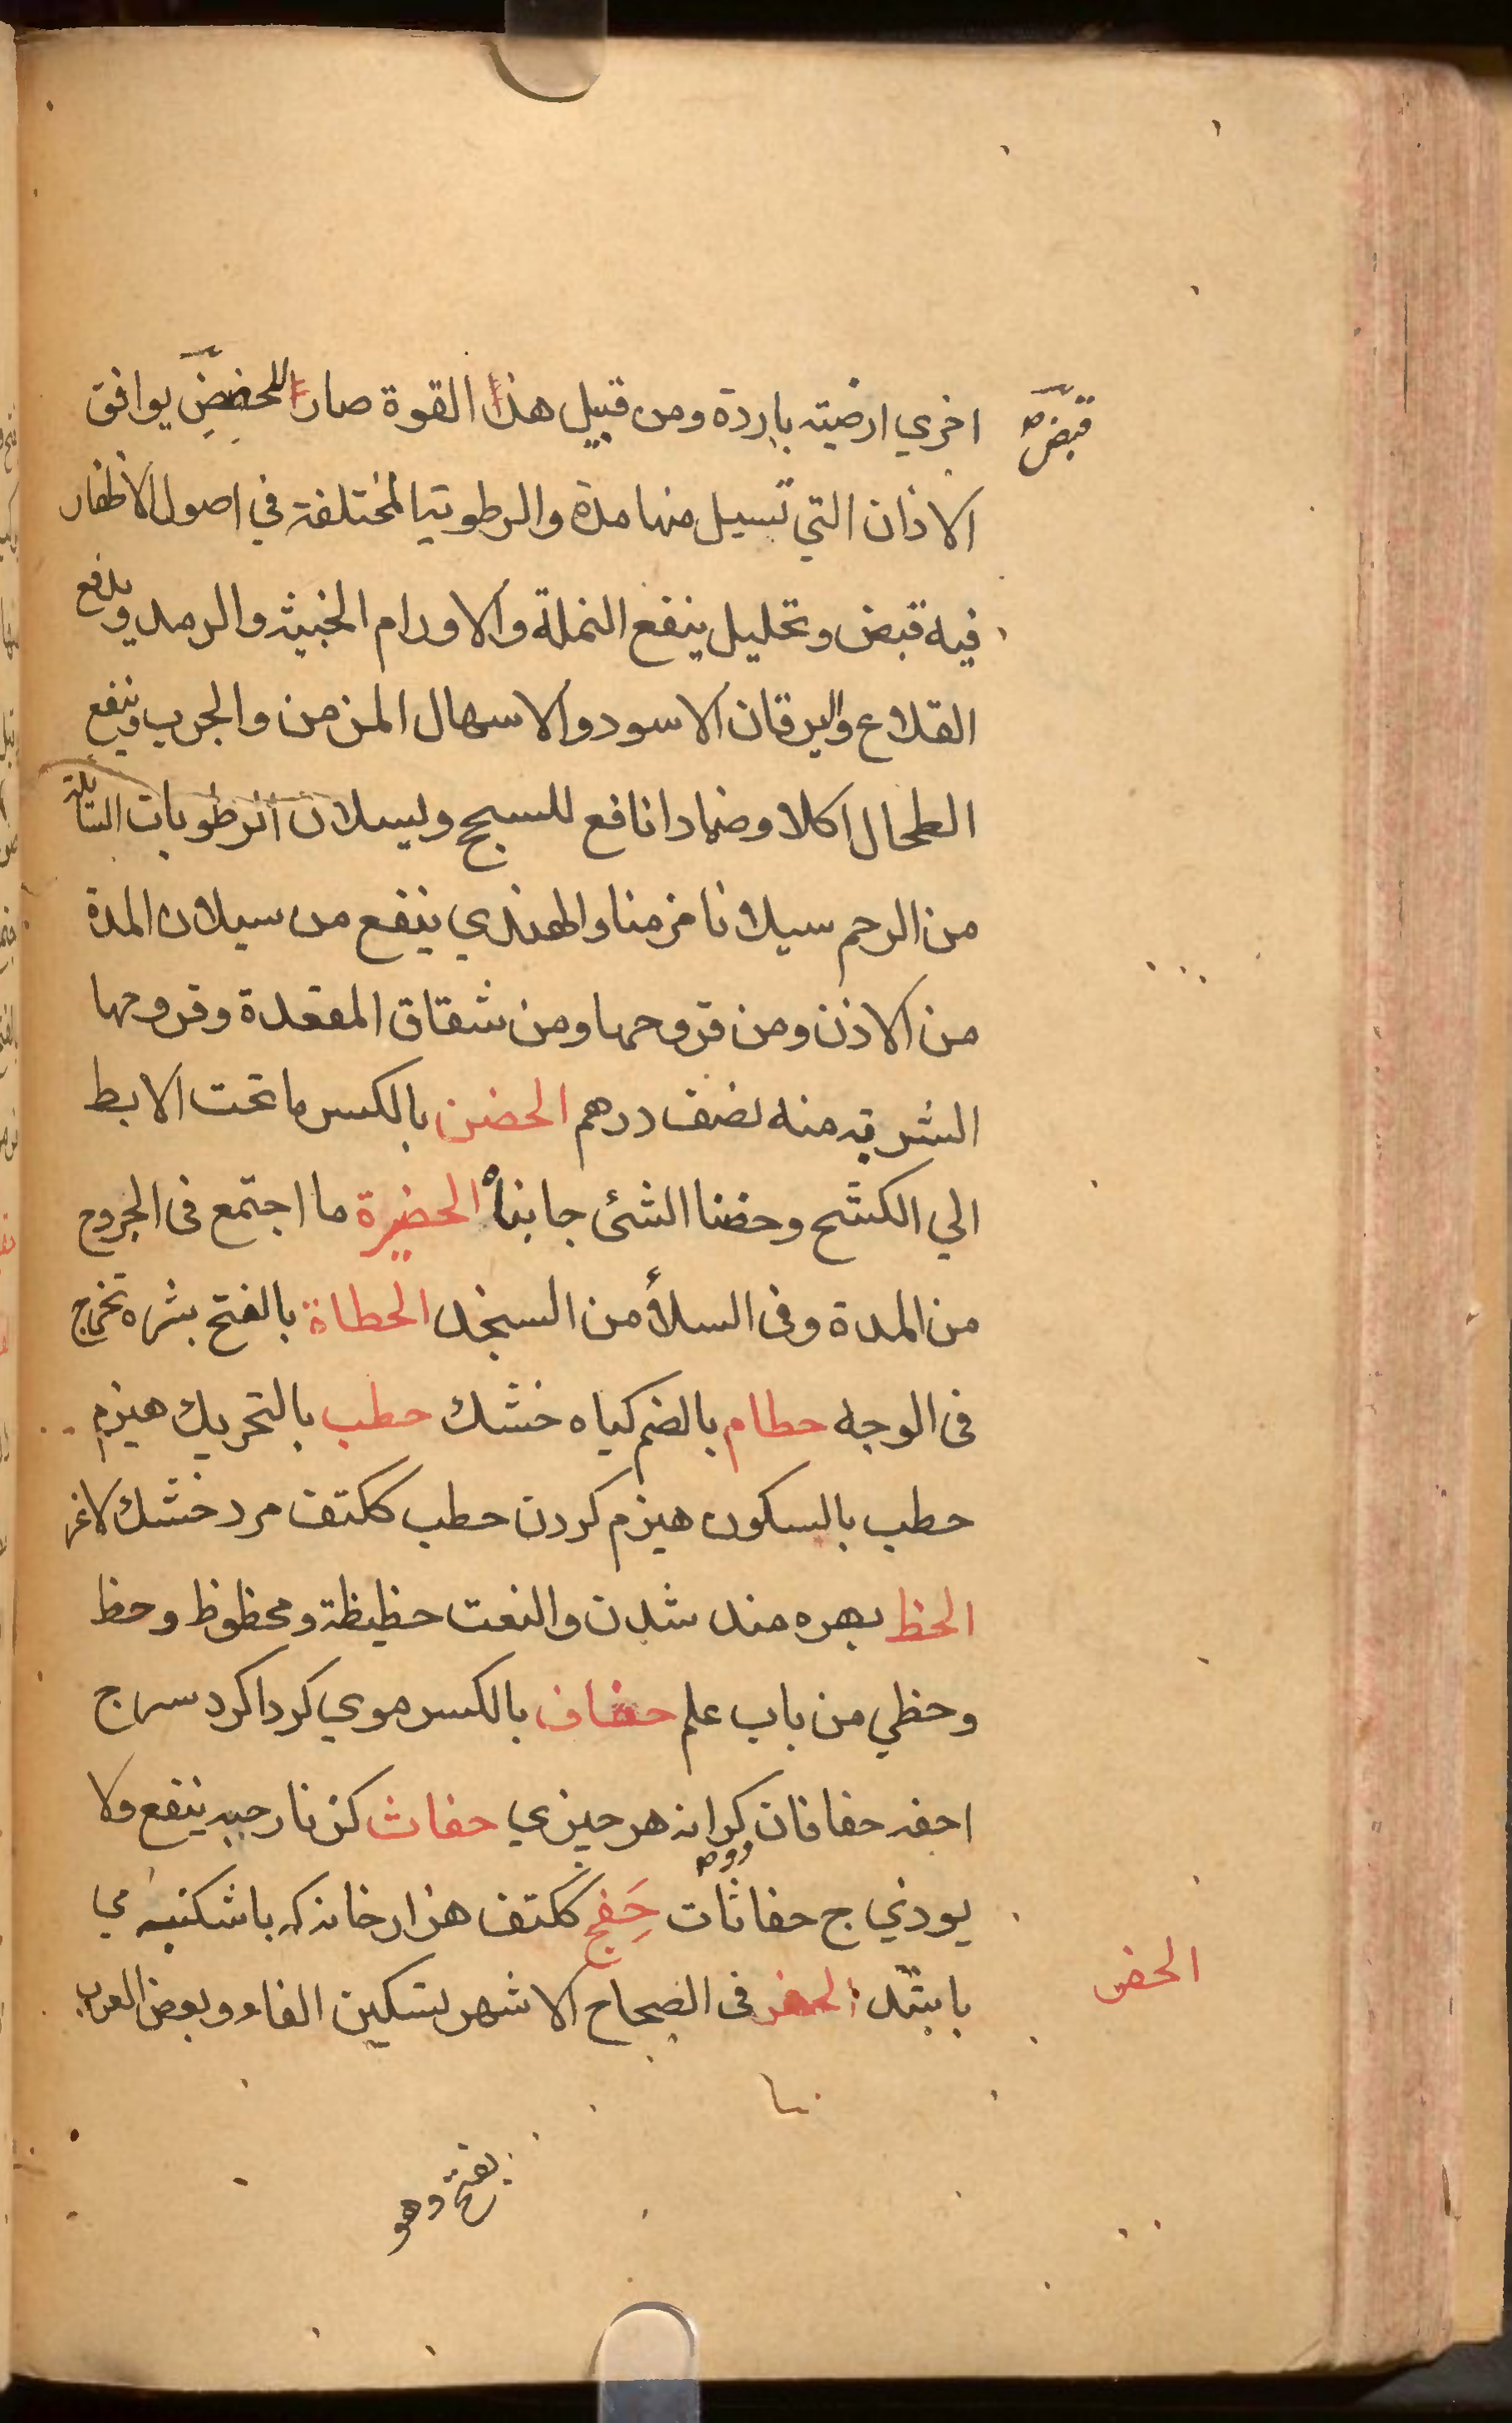 اخري ارضيته باردة ومن قبيل هذا القوة صار للحضض يوافق
قبض صح
الاذان التي تسيل منها مدة والرطوبتيا المختلفة في اصول الاظفار
فيه قبض وتحليل ينفع النملة والاورام الخبيثه والرمد ويدفع
القلاع واليرقان الاسود والاسهال المزمن والجرب وينفع
الطحال اكلا وضمادا نافع للسحج وليسلان الرطوبات السائلة
من الرحم سيلانا مزمنا والهندي ينفع من سيلان المدة
من الاذن ومن قروحها ومن شقاق المقعدة وقروحها
الشربة منه نصف درهم الحضن بالكسر ما تحت الابط
الي الكشح وحضنا الشئ جانباه الحضيرة ما اجتمع فى الجروح
من المدة وفى السلأ من السخد الحطاة بالفتح بثره تخرج
فى الوجه حطام بالضم كياه خشك حطب بالتحريك هيزم
حطب بالسكون هيزم كردن حطب ككتف مرد خشك لاغر
الحظ بهره مند شدن والنعت حظيظة ومحظوظ وحظ
وحظي من باب علم حفاف بالكسر موي كرداكرد سر ج
احفه حفافان كرانه هر چيزي حفاث كزنار حيه ينفع ولا
يوذي ج حفاثات حَفِج ككتف هزار خانه كه باشكنبه مي
با بتد الحفر فى الصحاح الاشهر بتسكين الفاء وبعض العرب
الحفر
بفتح وهو